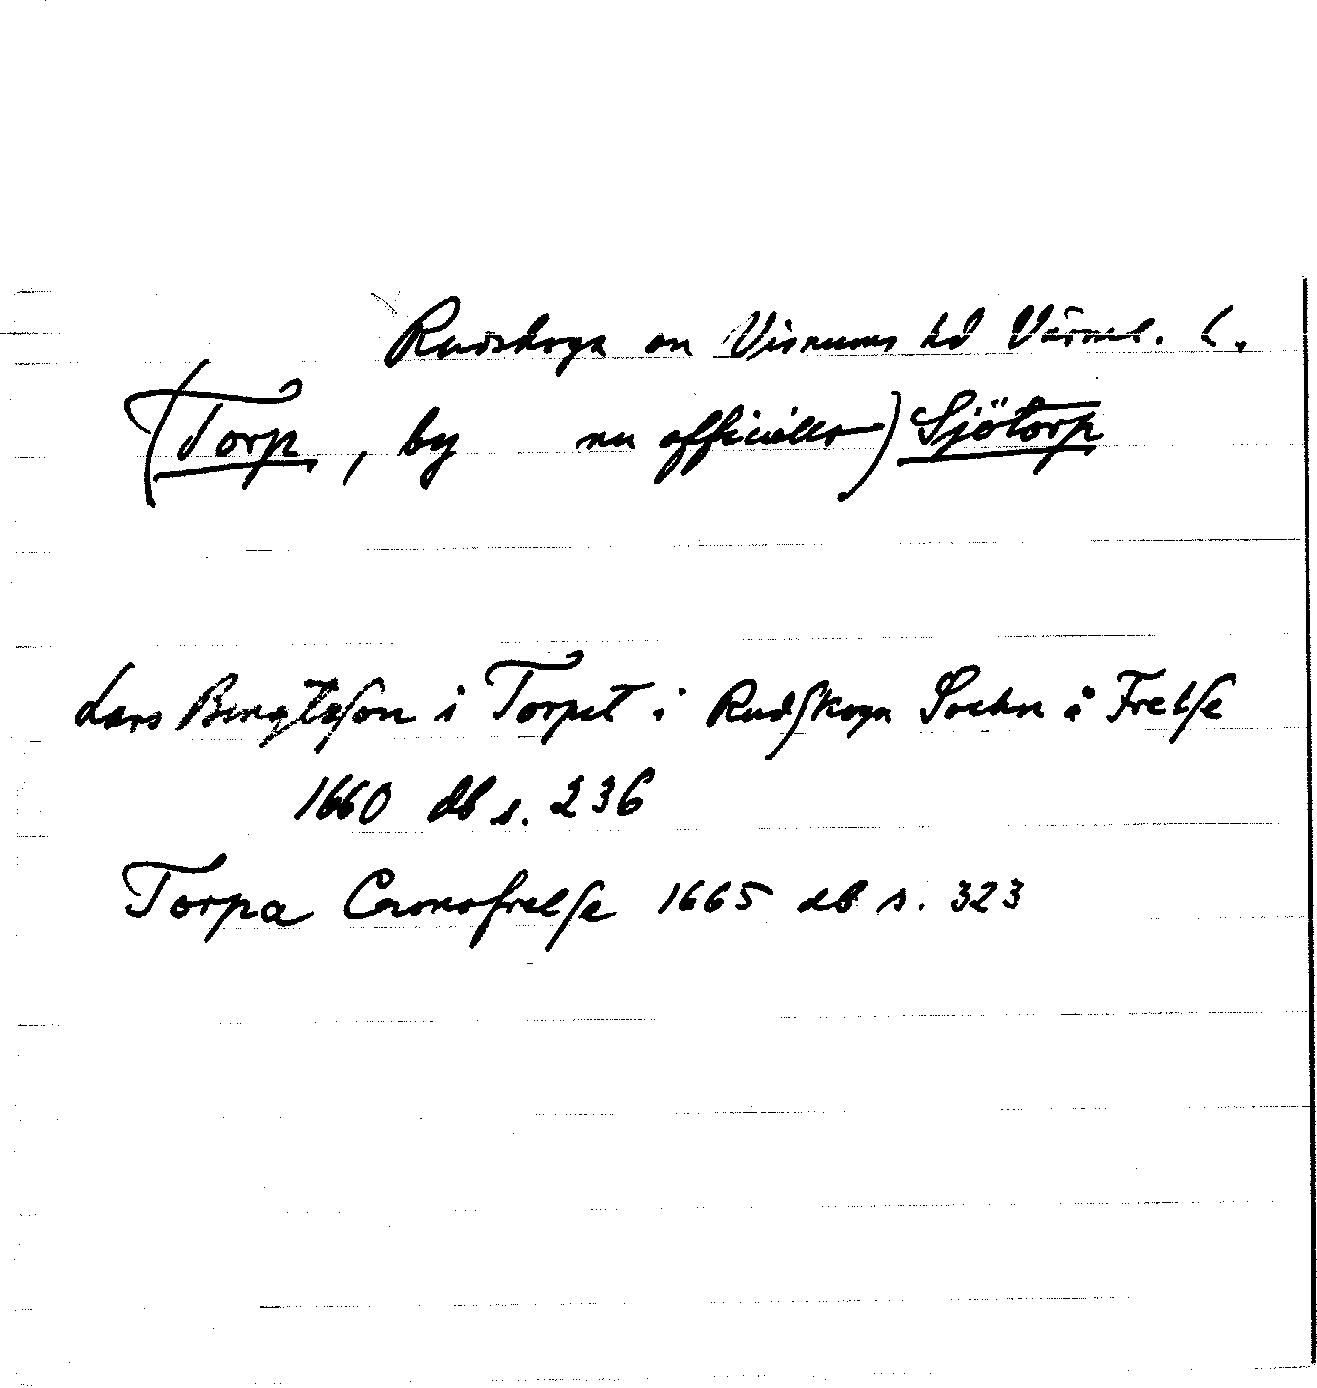 Rudskoga sn Visnums hd Värml. l.
(Torp, by nu officiellt) Sjötorp
Lars Bengtsson i Torpet i Rudskoga Sochn å Frelse
1660 db s. 236
Torpa Cronofrelse 1665 db s. 323